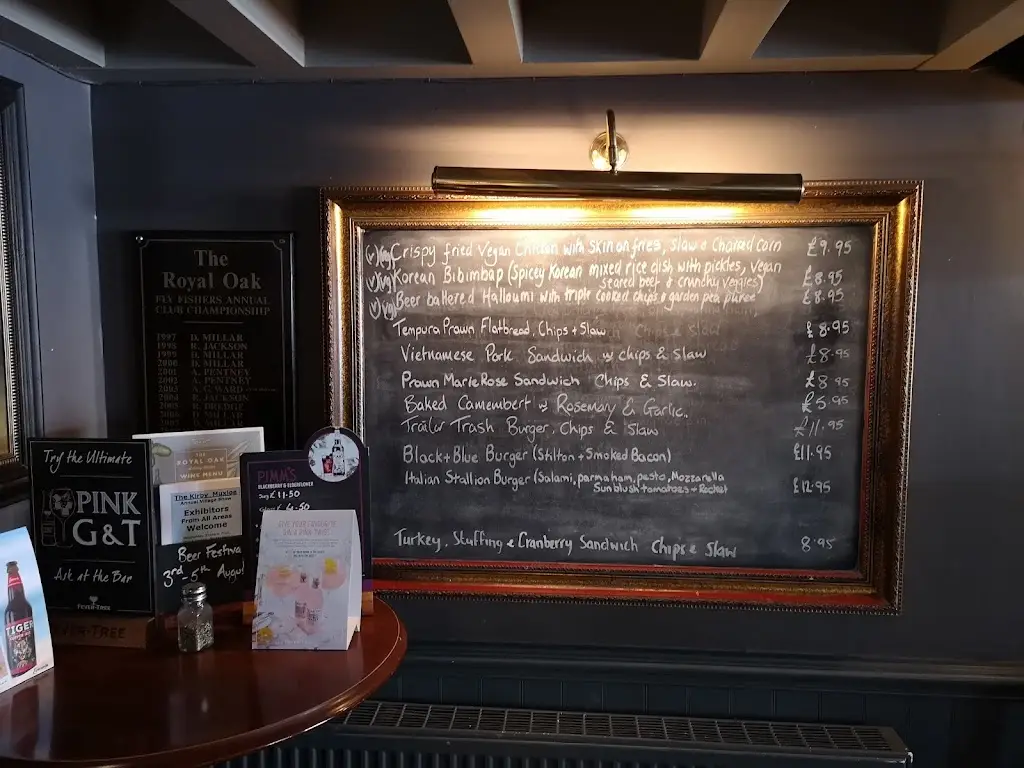 (v)(vg) Crispy fried Vegan Chicken with skin on fries, slaw & Charred corn £9.95
(v)(vg) Korean Bibimbap (Spicey Korean mixed rice dish with pickles, vegan
seared beef & crunchy veggies) £8.95
(v)(vg) Beer battered Halloumi with triple cooked chips & garden pea puree £8.95
Tempura Prawn Flatbread, Chips + Slaw £8.95
Vietnamese Pork Sandwich w chips & Slaw £8.95
Prawn MarieRose Sandwich Chips & Slaw. £8.95
Baked Camembert w Rosemary & Garlic. £5.95
Trailer Trash Burger, Chips & Slaw £11.95
Black + Blue Burger (Stilton + Smoked Bacon) £11.95
Italian Stallion Burger (Salami, parma ham, pesto, Mozzarella
Sunblush tomatoes + Rocket £12.95
Turkey, Stuffing & Cranberry Sandwich Chips & Slaw 8.95
The
Royal Oak
FLY FISHERS ANNUAL
CLUB CHAMPIONSHIP
1997 D. MILLAR
1998 R. JACKSON
1999 D. MILLAR
2000 D. MILLAR
2001 A. PENTNEY
2002 A. PENTNEY
2003 A. C. WARD
2004 R. JACKSON
2005 R. DREDGE
Try the Ultimate
PINK
G&T
Ask at the Bar
FEVER-TREE
VER-TREE
THE
ROYAL OAK
WINE MENU
The Kirby Muxloe
Annual Village Show
Exhibitors
From All Areas
Welcome
Beer Festiva
3rd - 5th Augus
PIMM'S
BLACKBERRY & ELDERFLOWER
Jug £11.50
TIGER